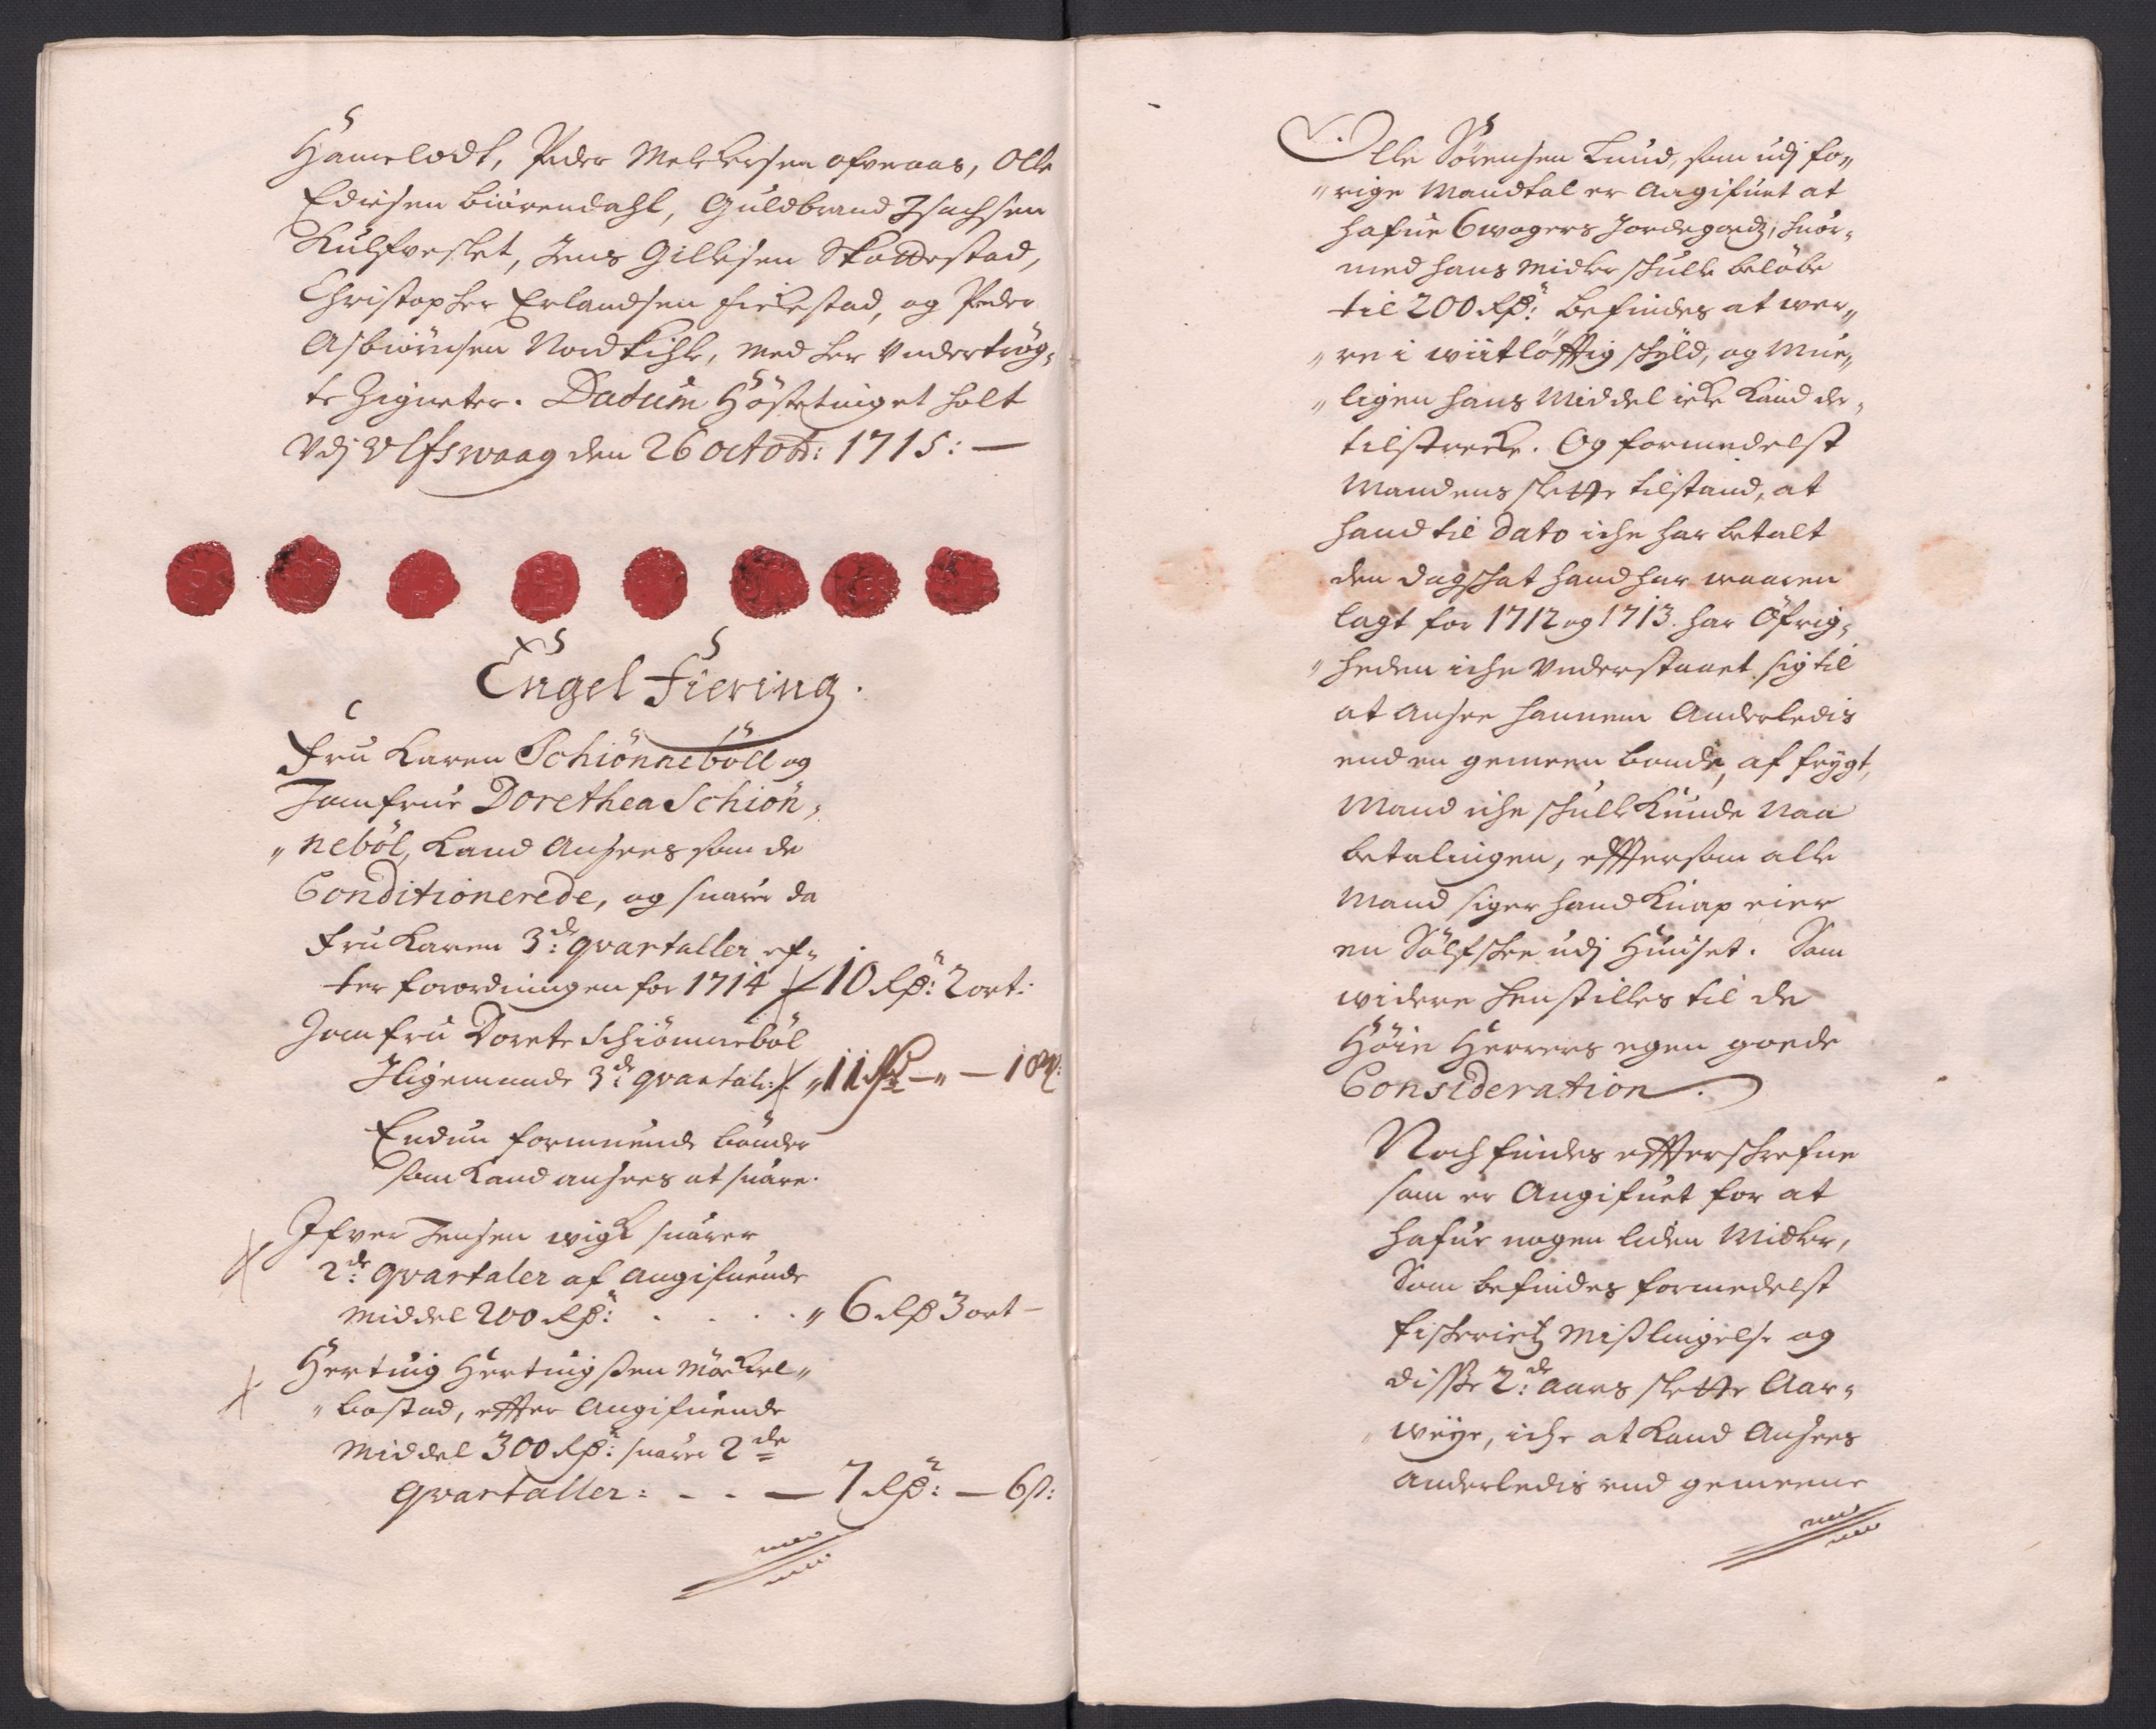 Hamelodt, Peder Melchersen ofvenaas, Olle
Edisen Biörendahl, Guldbrand Isachsen
Kulfvestet, Jens Gillesen Skottestad,
Christopher Erlandsen Fiskestad, og Peder
Asbiörnsen Nordkihl, med her undertrög-
te Zigneter. Datum Höstetinget holt
Vdj Ulfswaag den 26 octob: 1715: —
Engel Fiering.
Fru Karen Schiönneböll og
Jomfrue Dorethea Schiön,
„ neböl, kand Ansees som de
Conditionerede, og suarer da
Fru Karen 3de qvartaller ef„
ter forordningen for 1714 10 Rd: 2 ort:
Jomfru Dorete Schiönneböl
Iligemaade 3de qvartal: „ 11 Rd — „ — 10
Endnu formuende bönder
som kand ansees at suare.
Ifver Jensen wigk suarer
2de qvartaler af angifuende
middel 200 Rd: . . . . „ 6 Rd 3 ort —
Hertuig Hertuigsen Möckel„
„ bostad, effter Angifuende
Middel 300 Rd: suarer 2de
qvartaller: - - — 7 Rd: — 6 s:
Olle Sörensen Lund, som udj fo„
„ rige Mandtal er Angifuet at
hafue 6 wogers Jordegods, huor-
med hans Midler skulle belöbe
til 200 Rd: befindes at wer„
„ re i wiitlöfftig skyld, og Mue„
„ ligen hans Middel icke kand der,
tilstrecke. Og formedelst
Mandens slette tilstand, at
hand til dato iche har betalt
den dagskat hand har waaren
lagt for 1712 og 1713. har Öfrig,
„ heden iche understaaet sig til
at ansee hannem Anderledis
end en gemeen bonde, af frygt,
Mand iche skulle kunde Naa
betalingen, efftersom alle
Mand siger hand knap eier
en Sölfskee udj Huuset. Som
widere henstilles til de
Höie Herrers egen goede
Consideration.
Noch findes effterskrefne
som er Angifuet for at
hafue nogen liden Midler,
Som befindes formedelst
fiskeriets Misslingelse og
disse 2de aars slette Aar„
weye, iche at kand Ansees
anderledis end gemeene